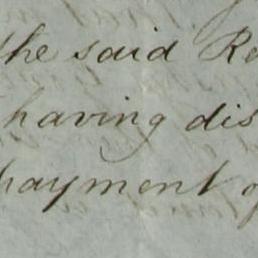 the said Re
having dis
payment of